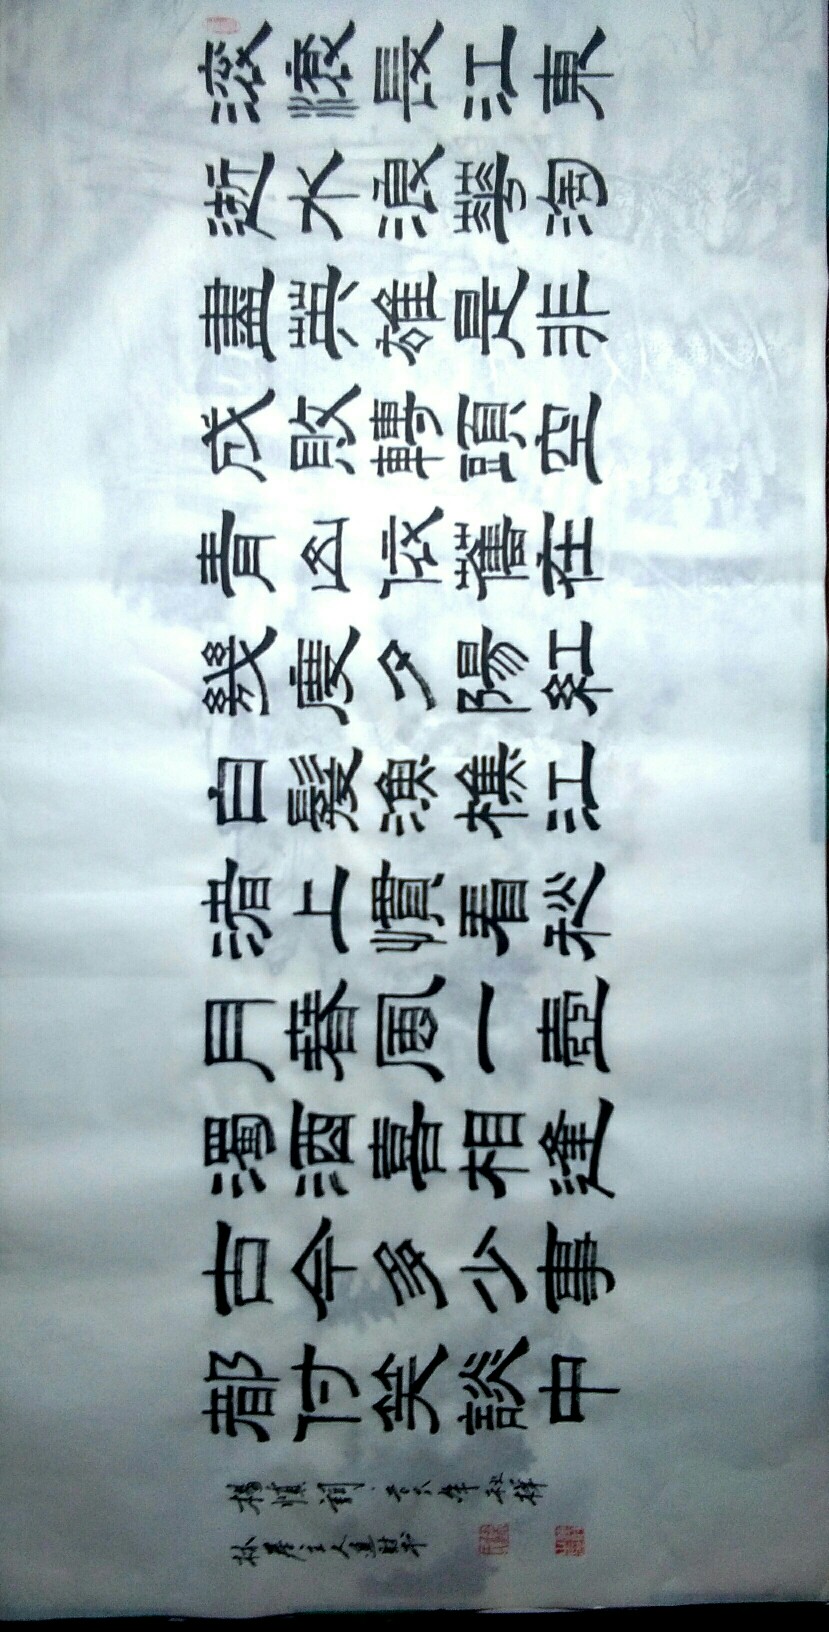 滾滾長江東
逝水浪華淘
盡英雄是非
成敗轉頭空
青山依舊在
幾度夕陽紅
白髮漁樵江
渚上慣看秋
月春風一壺
濁酒喜相逢
古今多少事
都付笑談中
楊慎詞